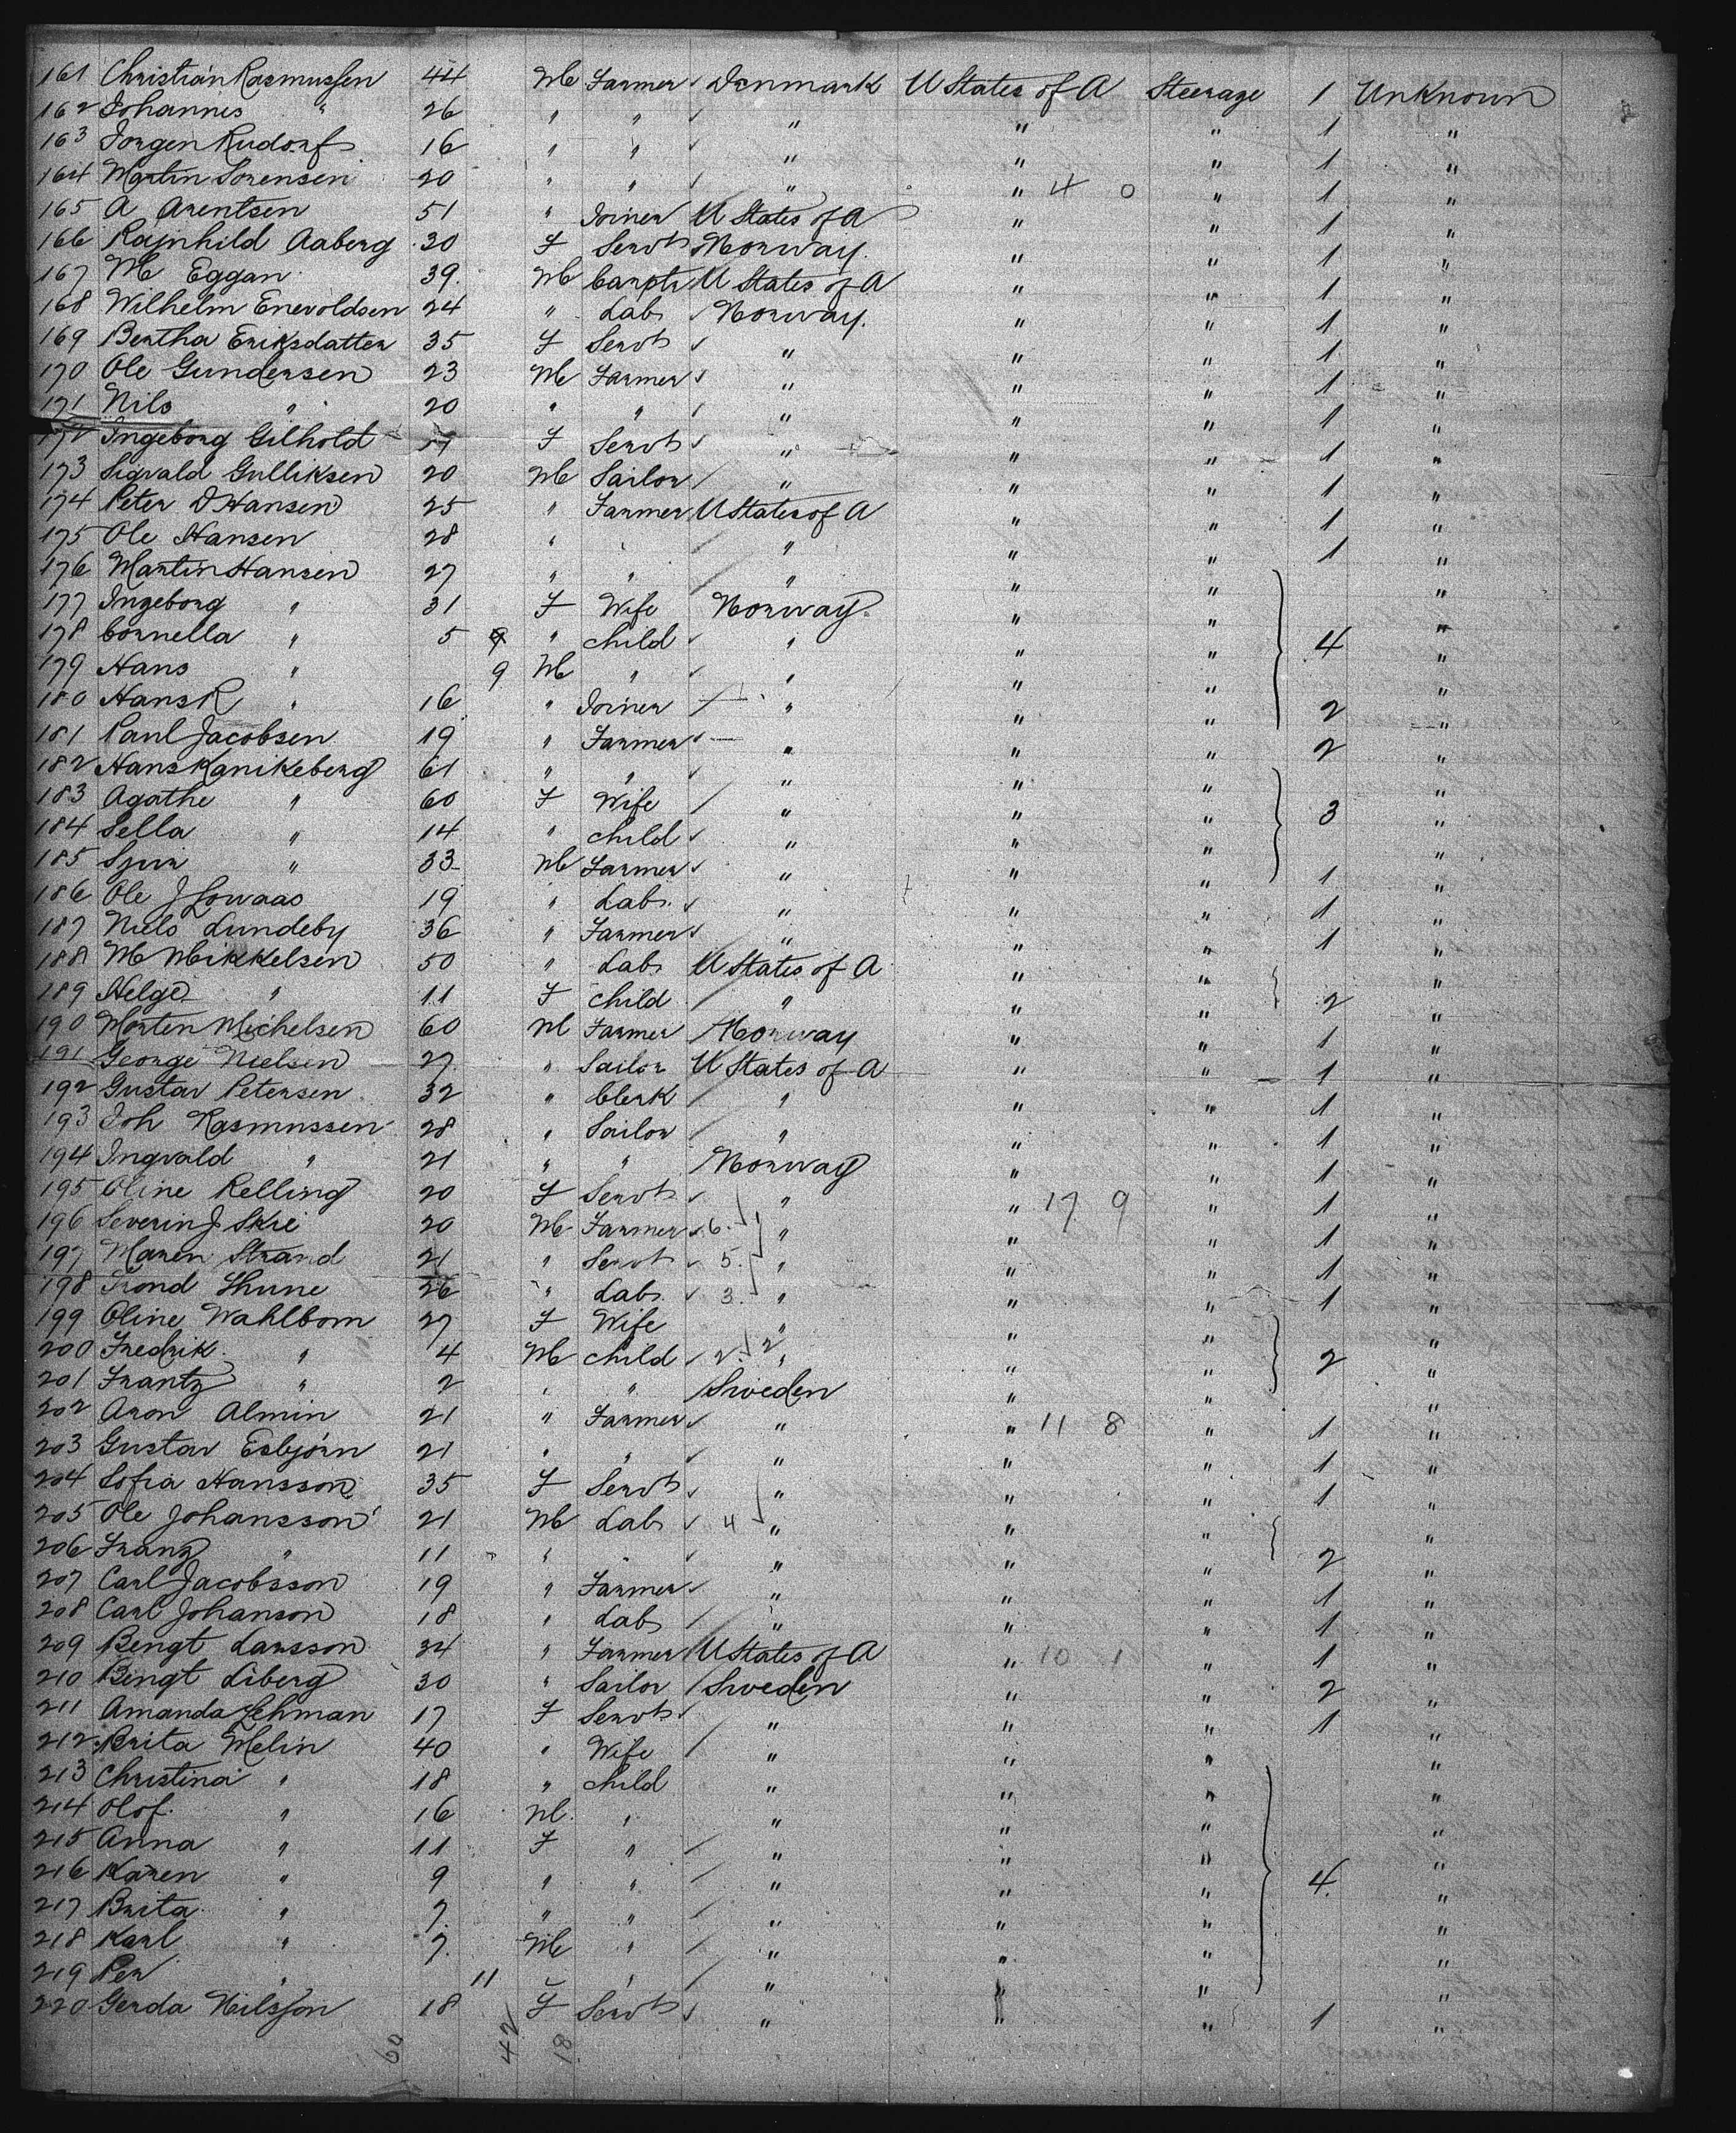 161 Christian Rasmussen 44 M Farmer Denmark U States of A Steerage 1 Unknown
162 Johannes " 26 " " " " " 1 "
163 Jorgen Rudorf 16 " " " " " 1 "
164 Martin Sorensen 20 " " " " 4 0 " 1 "
165 A Arentsen 51 " Joiner U States of A " " 1 "
166 Rajnhild Aaberg 30 F Servt Norway " " 1 "
167 M Eggan 39 M Carptr U States of A " " 1 "
168 Wilhelm Enevoldsen 24 " Labr Norway " " 1 "
169 Bertha Eriksdatter 35 F Servt " " " 1 "
170 Ole Gundersen 23 M Farmer " " " 1 "
171 Nils " 20 " " " " " 1 "
172 Ingeborg Gilhold F Servt " " " 1 "
173 Sigvald Gulliksen 20 M Sailor " " " 1 "
174 Peter D Hansen 25 " Farmer U States of A " " 1 "
175 Ole Hansen 28 " " " " " 1 "
176 Martin Hansen 27 " " " " " "
177 Ingeborg " 31 F Wife Norway " " "
178 Cornella " 5 " child " " " 4 "
179 Hans " 9 M " " " " "
180 Hans R " 16 " Joiner " " " 2 "
181 Paul Jacobsen 19 " Farmer " " " 2 "
182 Hans Kanikeberg 61 " " " " " "
183 Agathe " 60 F Wife " " " 3 "
184 Sella " 14 " child " " " "
185 Sjur " 33 M Farmer " " " 1 "
186 Ole J Lowaas 19 " Labr " " " 1 "
187 Niels Lundeby 36 " Farmer " " " 1 "
188 M Mikkelsen 50 " Labr U States of A " " "
189 Helge " 11 F child " " " 2 "
190 Morten Michelsen 60 M Farmer Norway " " 1 "
191 George Nielsen 27 " Sailor U States of A " " 1 "
192 Gustav Petersen 32 " Clerk " " " 1 "
193 Joh Rasmussen 28 " Sailor " " " 1 "
194 Ingvald " 21 " " Norway " " 1 "
195 Oline Relling 20 F Servt " " 17 9 " 1 "
196 Severin J Skei 20 M Farmer 6 " " " 1 "
197 Maren Strand 21 " Servt 5 " " " 1 "
198 Trond Thune 26 " Labr 3 " " " 1 "
199 Oline Wahlbom 27 F Wife " " " "
200 Fredrik " 4 M child 2 2 " " " 2 "
201 Frantz " 2 " " Sweden " " "
202 Aron Almin 21 " Farmer " " 11 8 " 1 "
203 Gustav Esbjörn 21 " " " " " 1 "
204 Sofia Hansson 35 F Servt " " " 1 "
205 Ole Johansson 21 M Labr 4 " " " "
206 Franz " 11 " " " " " 2 "
207 Carl Jacobsson 19 " Farmer " " " 1 "
208 Carl Johanson 18 " Labr " " " 1 "
209 Bengt Larsson 34 " Farmer U States of A " 10 1 " 1 "
210 Bengt Liberg 30 " Sailor Sweden " " 2 "
211 Amanda Lehman 17 F Servt " " " 1 "
212 Brita Melin 40 " Wife " " " "
213 Christina " 18 " child " " " "
214 Olof " 16 M " " " " "
215 Anna " 11 F " " " " "
216 Karen " 9 " " " " " 4 "
217 Brita " 7 " " " " " "
218 Karl " 7 M " " " " "
219 Per " 11 " " " " " "
220 Gerda Nilsson 18 F Servt " " " 1 "
60 42 18